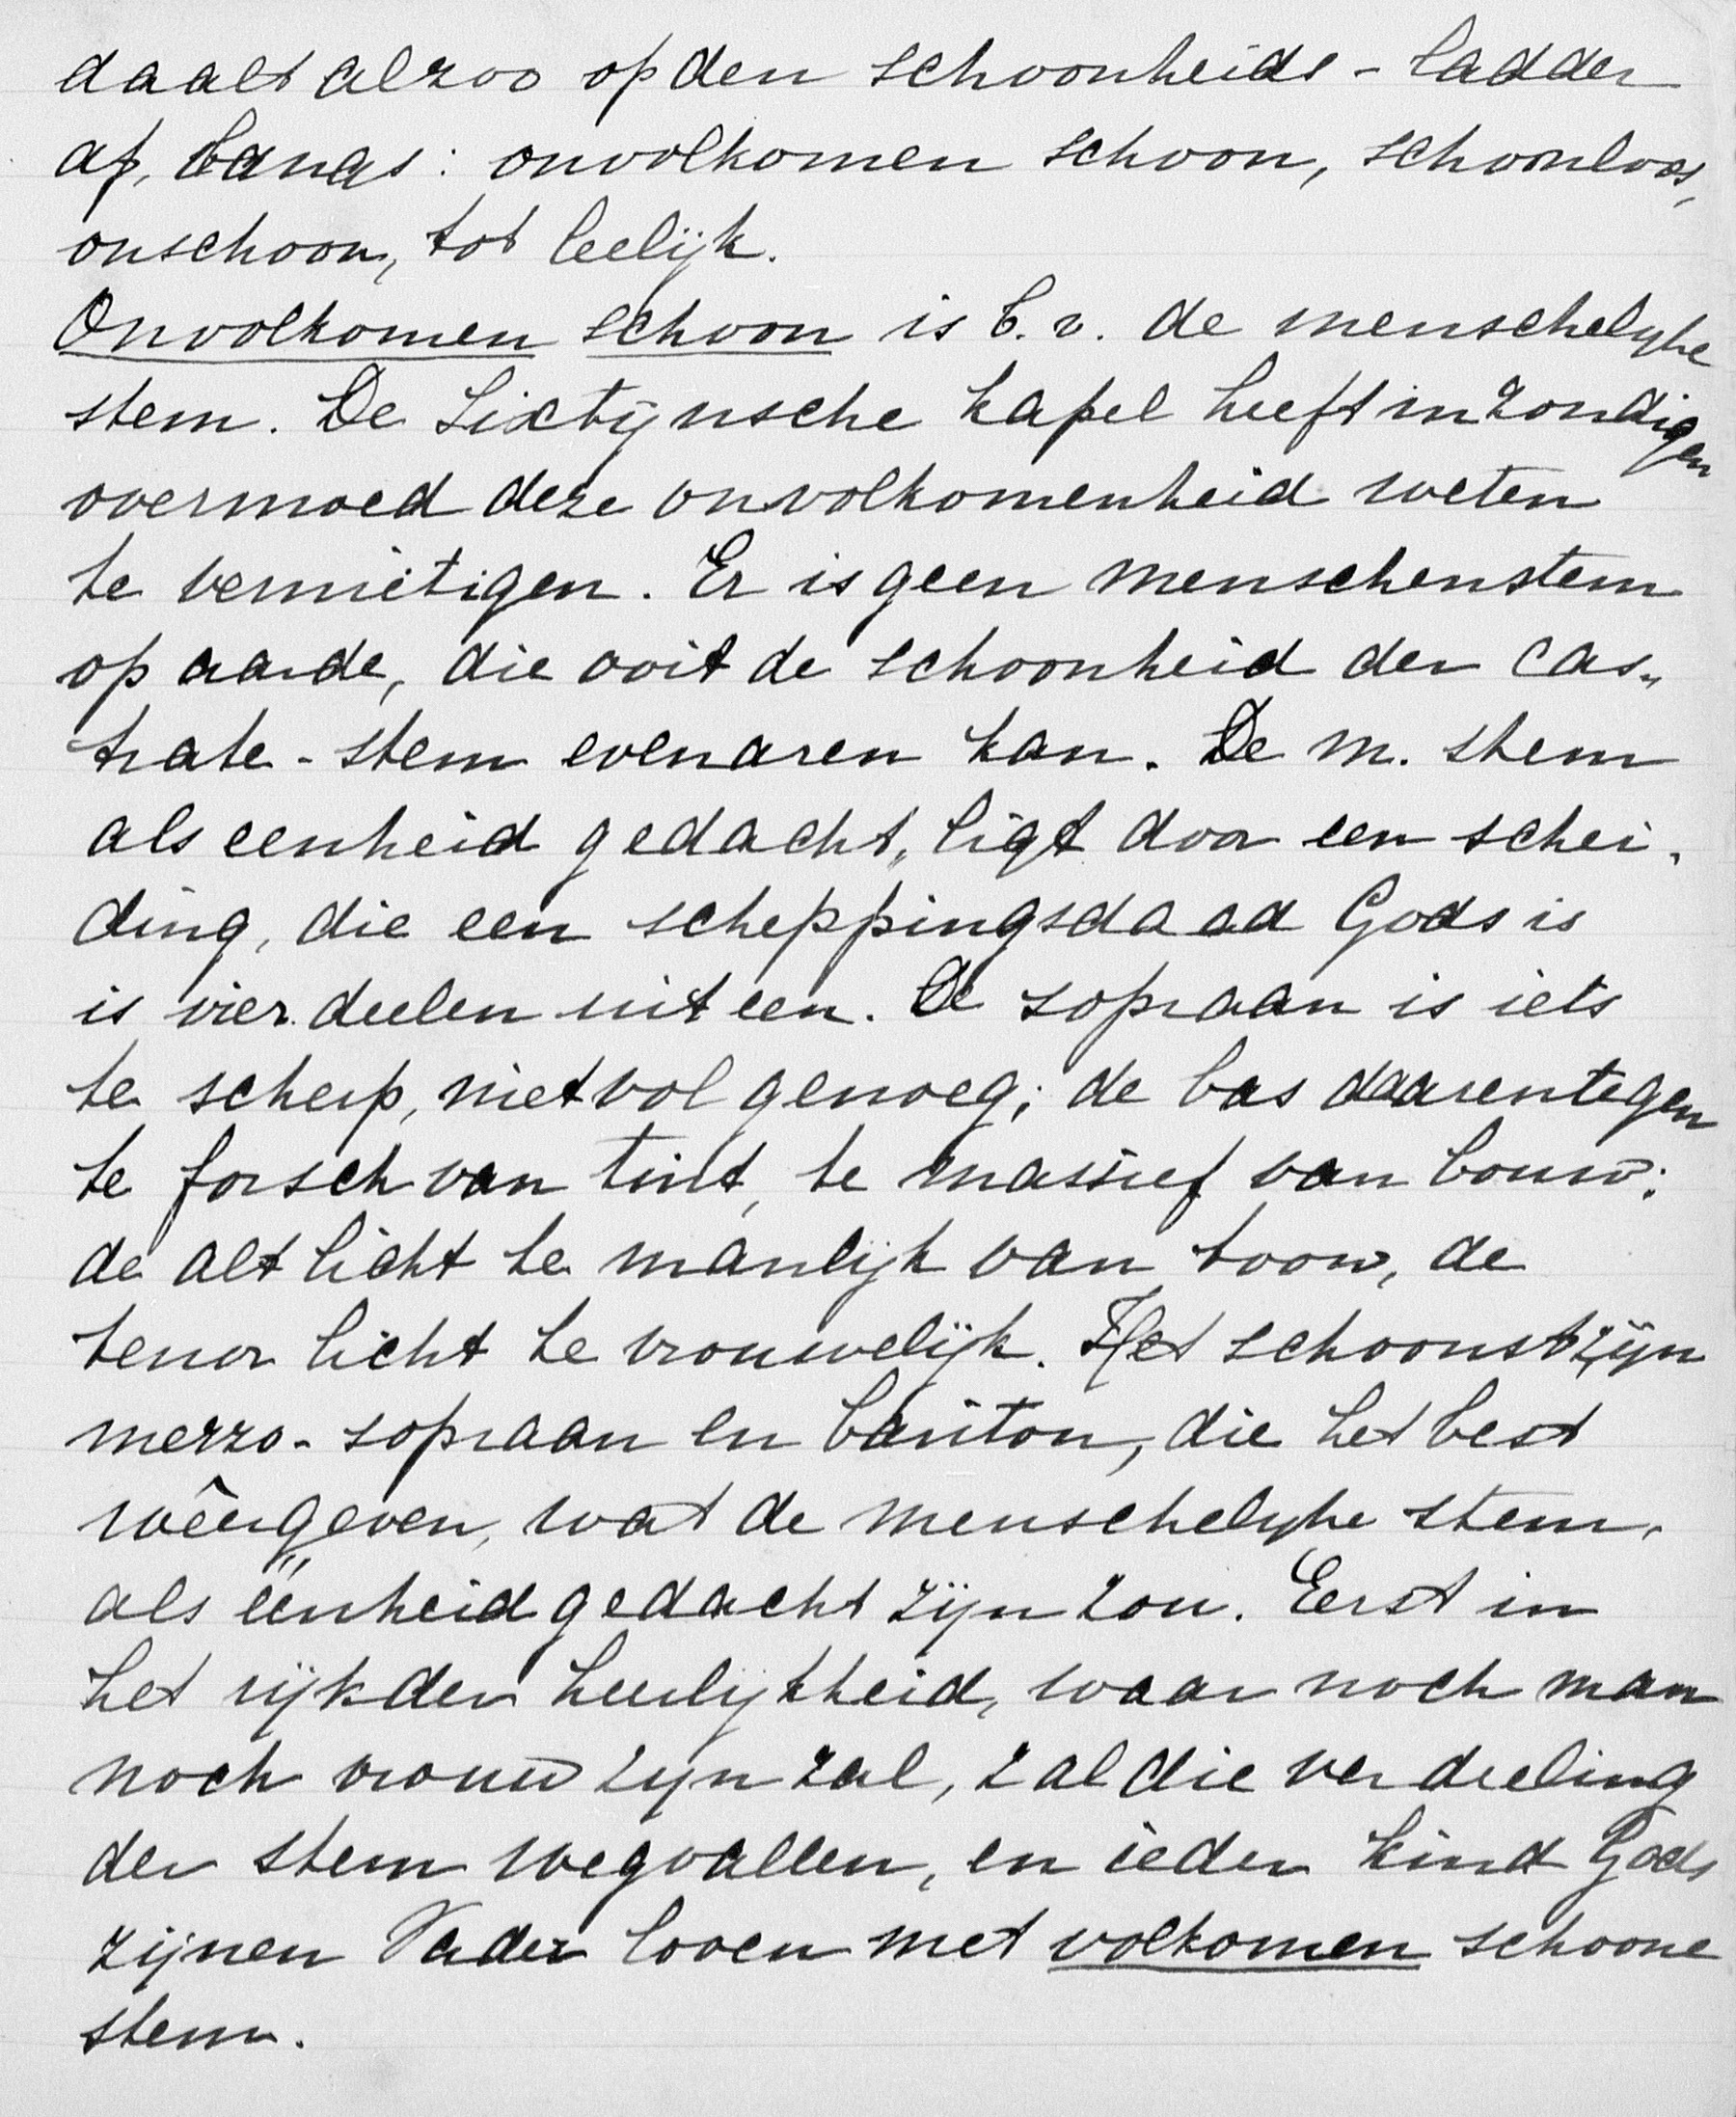 daalt alzoo op den schoonheids-ladder
af, langs: onvolkomen schoon, schoonloos,
onschoon, tot leelijk.
Onvolkomen schoon is b.v. de menschelyke
stem. De Sixtijnsche kapel heeft in zondigen
overmoed deze onvolkomenheid weten
te vernietigen. Er is geen menschenstem
op aarde, die ooit de schoonheid der cas„
trate-stem evenaren kan. De m. stem
als eenheid gedacht, ligt door een schei-
ding, die een scheppingsdaad Gods is
is vier deelen uit een. De sopraan is iets
te scherp, niet vol genoeg; de bas daarentegen
te forsch van tint, te massief van bouw;
de alt licht te manlijk van toon, de
tenor licht te vrouwelijk. Het schoonst zijn
mezzo-sopraan en bariton, die het best
wêergeven, wat de menschelyke stem,
als ëenheid gedacht zijn zou. Eerst in
het rijk der heerlijkheid, waar noch man
noch vrouw zyn zal, zal die verdeeling
der stem wegvallen, en ieder kind Gods
zijnen Vader loven met volkomen schoone
stem.